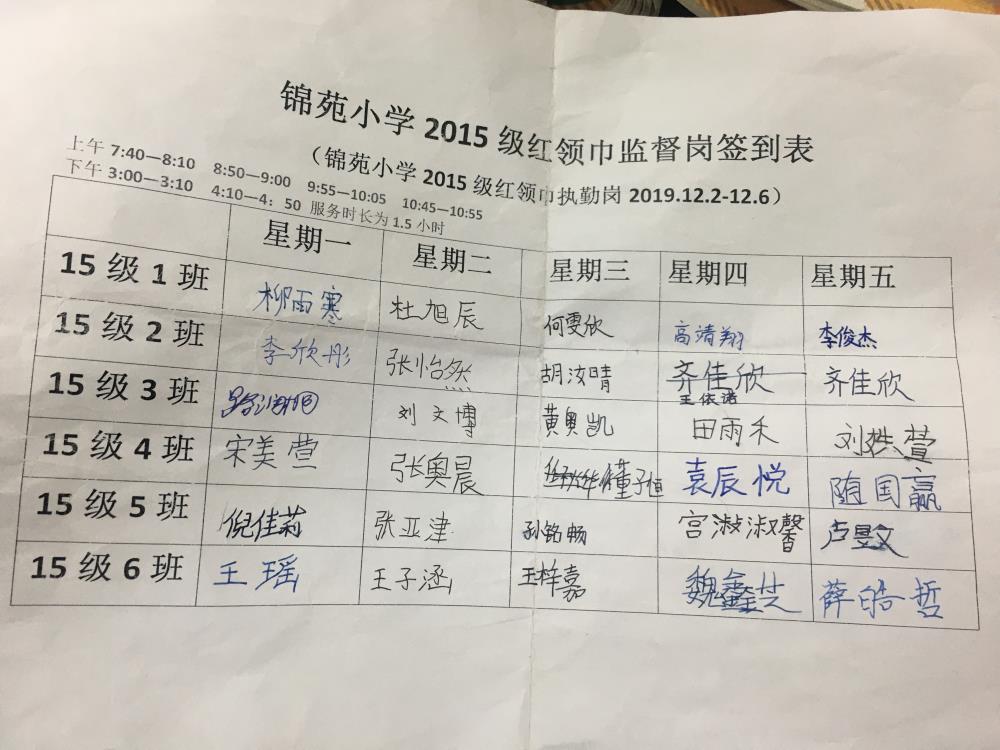 锦苑小学 2015 级红领巾监督岗签到表
（锦苑小学 2015 级红领巾执勤岗 2019.12.2-12.6）
上午 7:40—8:10 8:50—9:00 9:55—10:05 10:45—10:55
下午 3:00—3:10 4:10—4：50 服务时长为 1.5 小时
星期一 星期二 星期三 星期四 星期五
15 级 1 班 柳雨寒 杜旭辰 何雯欣 高靖翔 李俊杰
15 级 2 班 李欣彤 张怡然 胡汝晴 齐佳欣 王依诺 齐佳欣
15 级 3 班 刘文博 黄奥凯 田雨禾 刘洪萱
15 级 4 班 宋美萱 张奥晨 董子恒 袁辰悦 随国赢
15 级 5 班 倪佳莉 张亚津 孙铭畅 宫淑馨 卢旻文
15 级 6 班 王瑶 王子涵 王梓嘉 魏鑫芝 薛皓哲